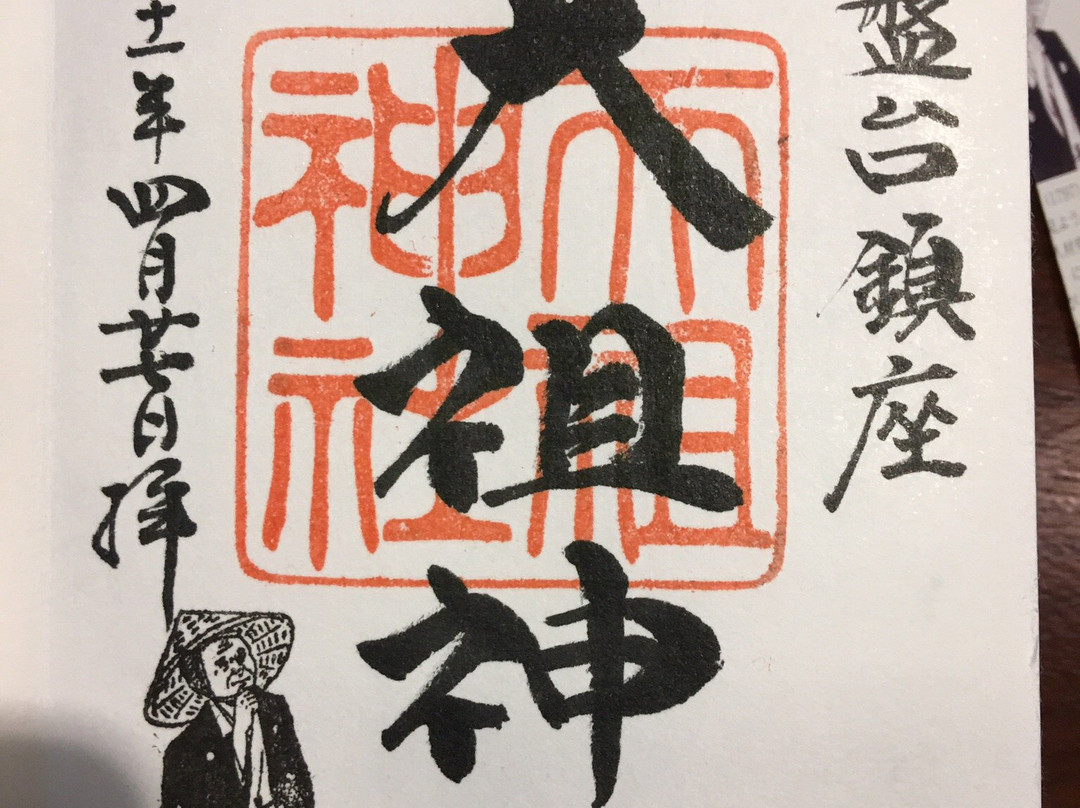 盤台鎮座
大祖神
大祖
神社
十一年四月廿七日拝